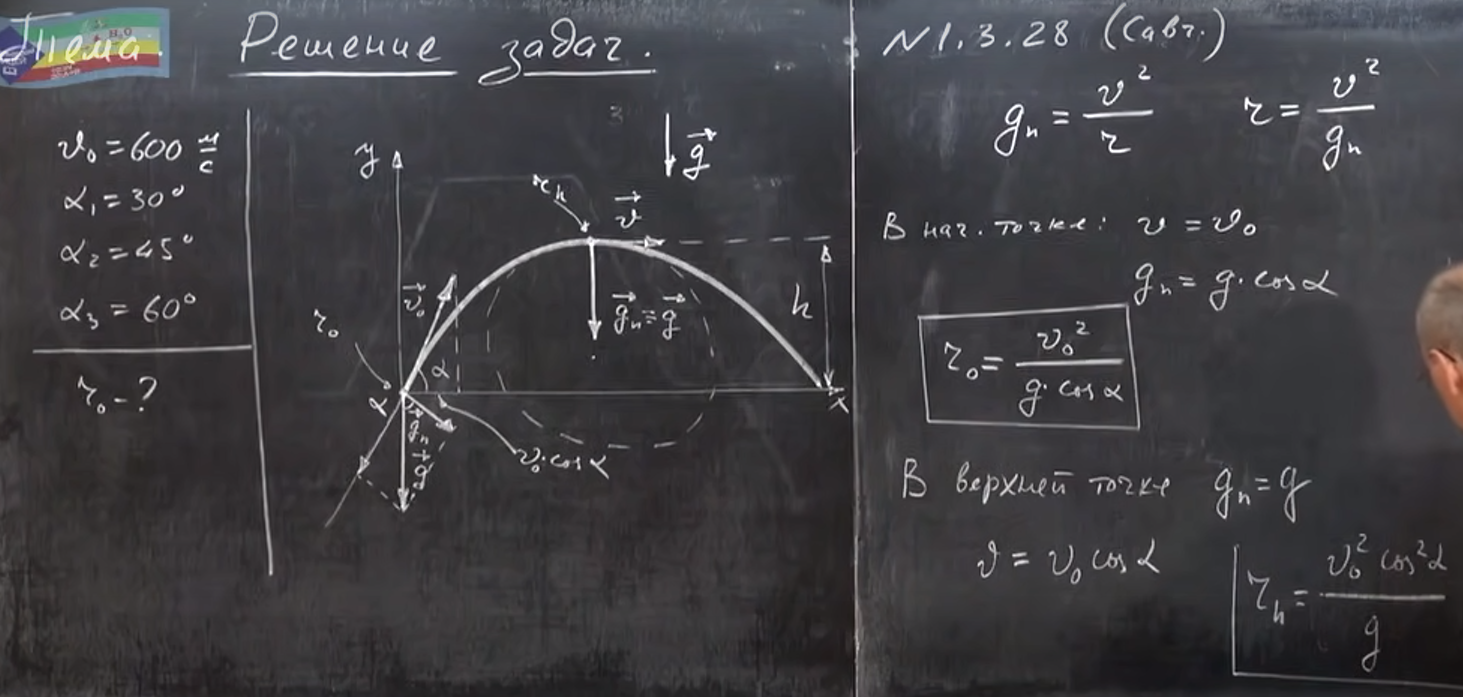 Тема. Решение задач.
v₀ = 600 м/с
α₁ = 30°
α₂ = 45°
α₃ = 60°
r₀ - ?
y
r_h
v⃗
g⃗
v⃗₀
g⃗ₙ ≡ g⃗
h
r₀
α
α
x
g⃗ₙ
g⃗
v₀·cos α
N 1.3.28 (Савч.)
gₙ = v²/r r = v²/gₙ
В нач. точке: v = v₀
gₙ = g·cos α
r₀ = v₀²/(g·cos α)
В верхней точке gₙ = g
v = v₀ cos α
r_h = v₀² cos² α/g